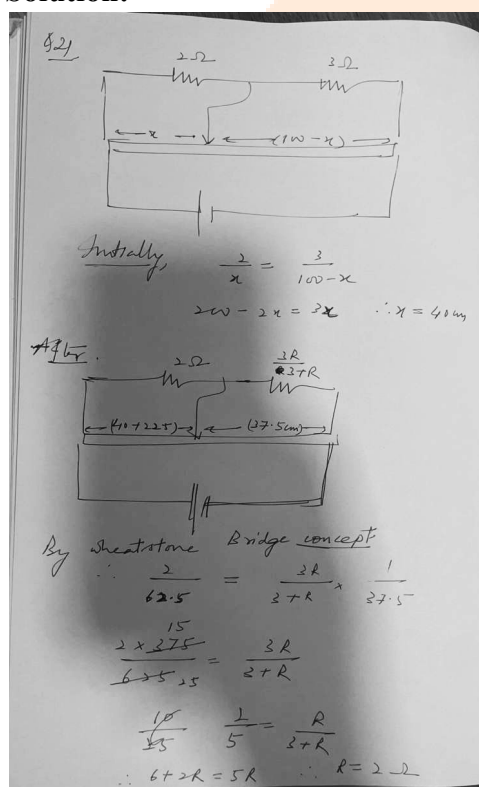 Solution:
Q21
2Ω 3Ω
x (100-x)
Initially, 2/x = 3/(100-x)
200-2x = 3x ∴ x = 40cm
After.
2Ω 3R/(3+R)
(40+22.5) (37.5cm)
By wheatstone Bridge concept
∴ 2/62.5 = 3R/(3+R) × 1/37.5
15
2×375/625 25 = 3R/(3+R)
2/5 = R/(3+R)
∴ 6+2R = 5R ∴ R = 2Ω